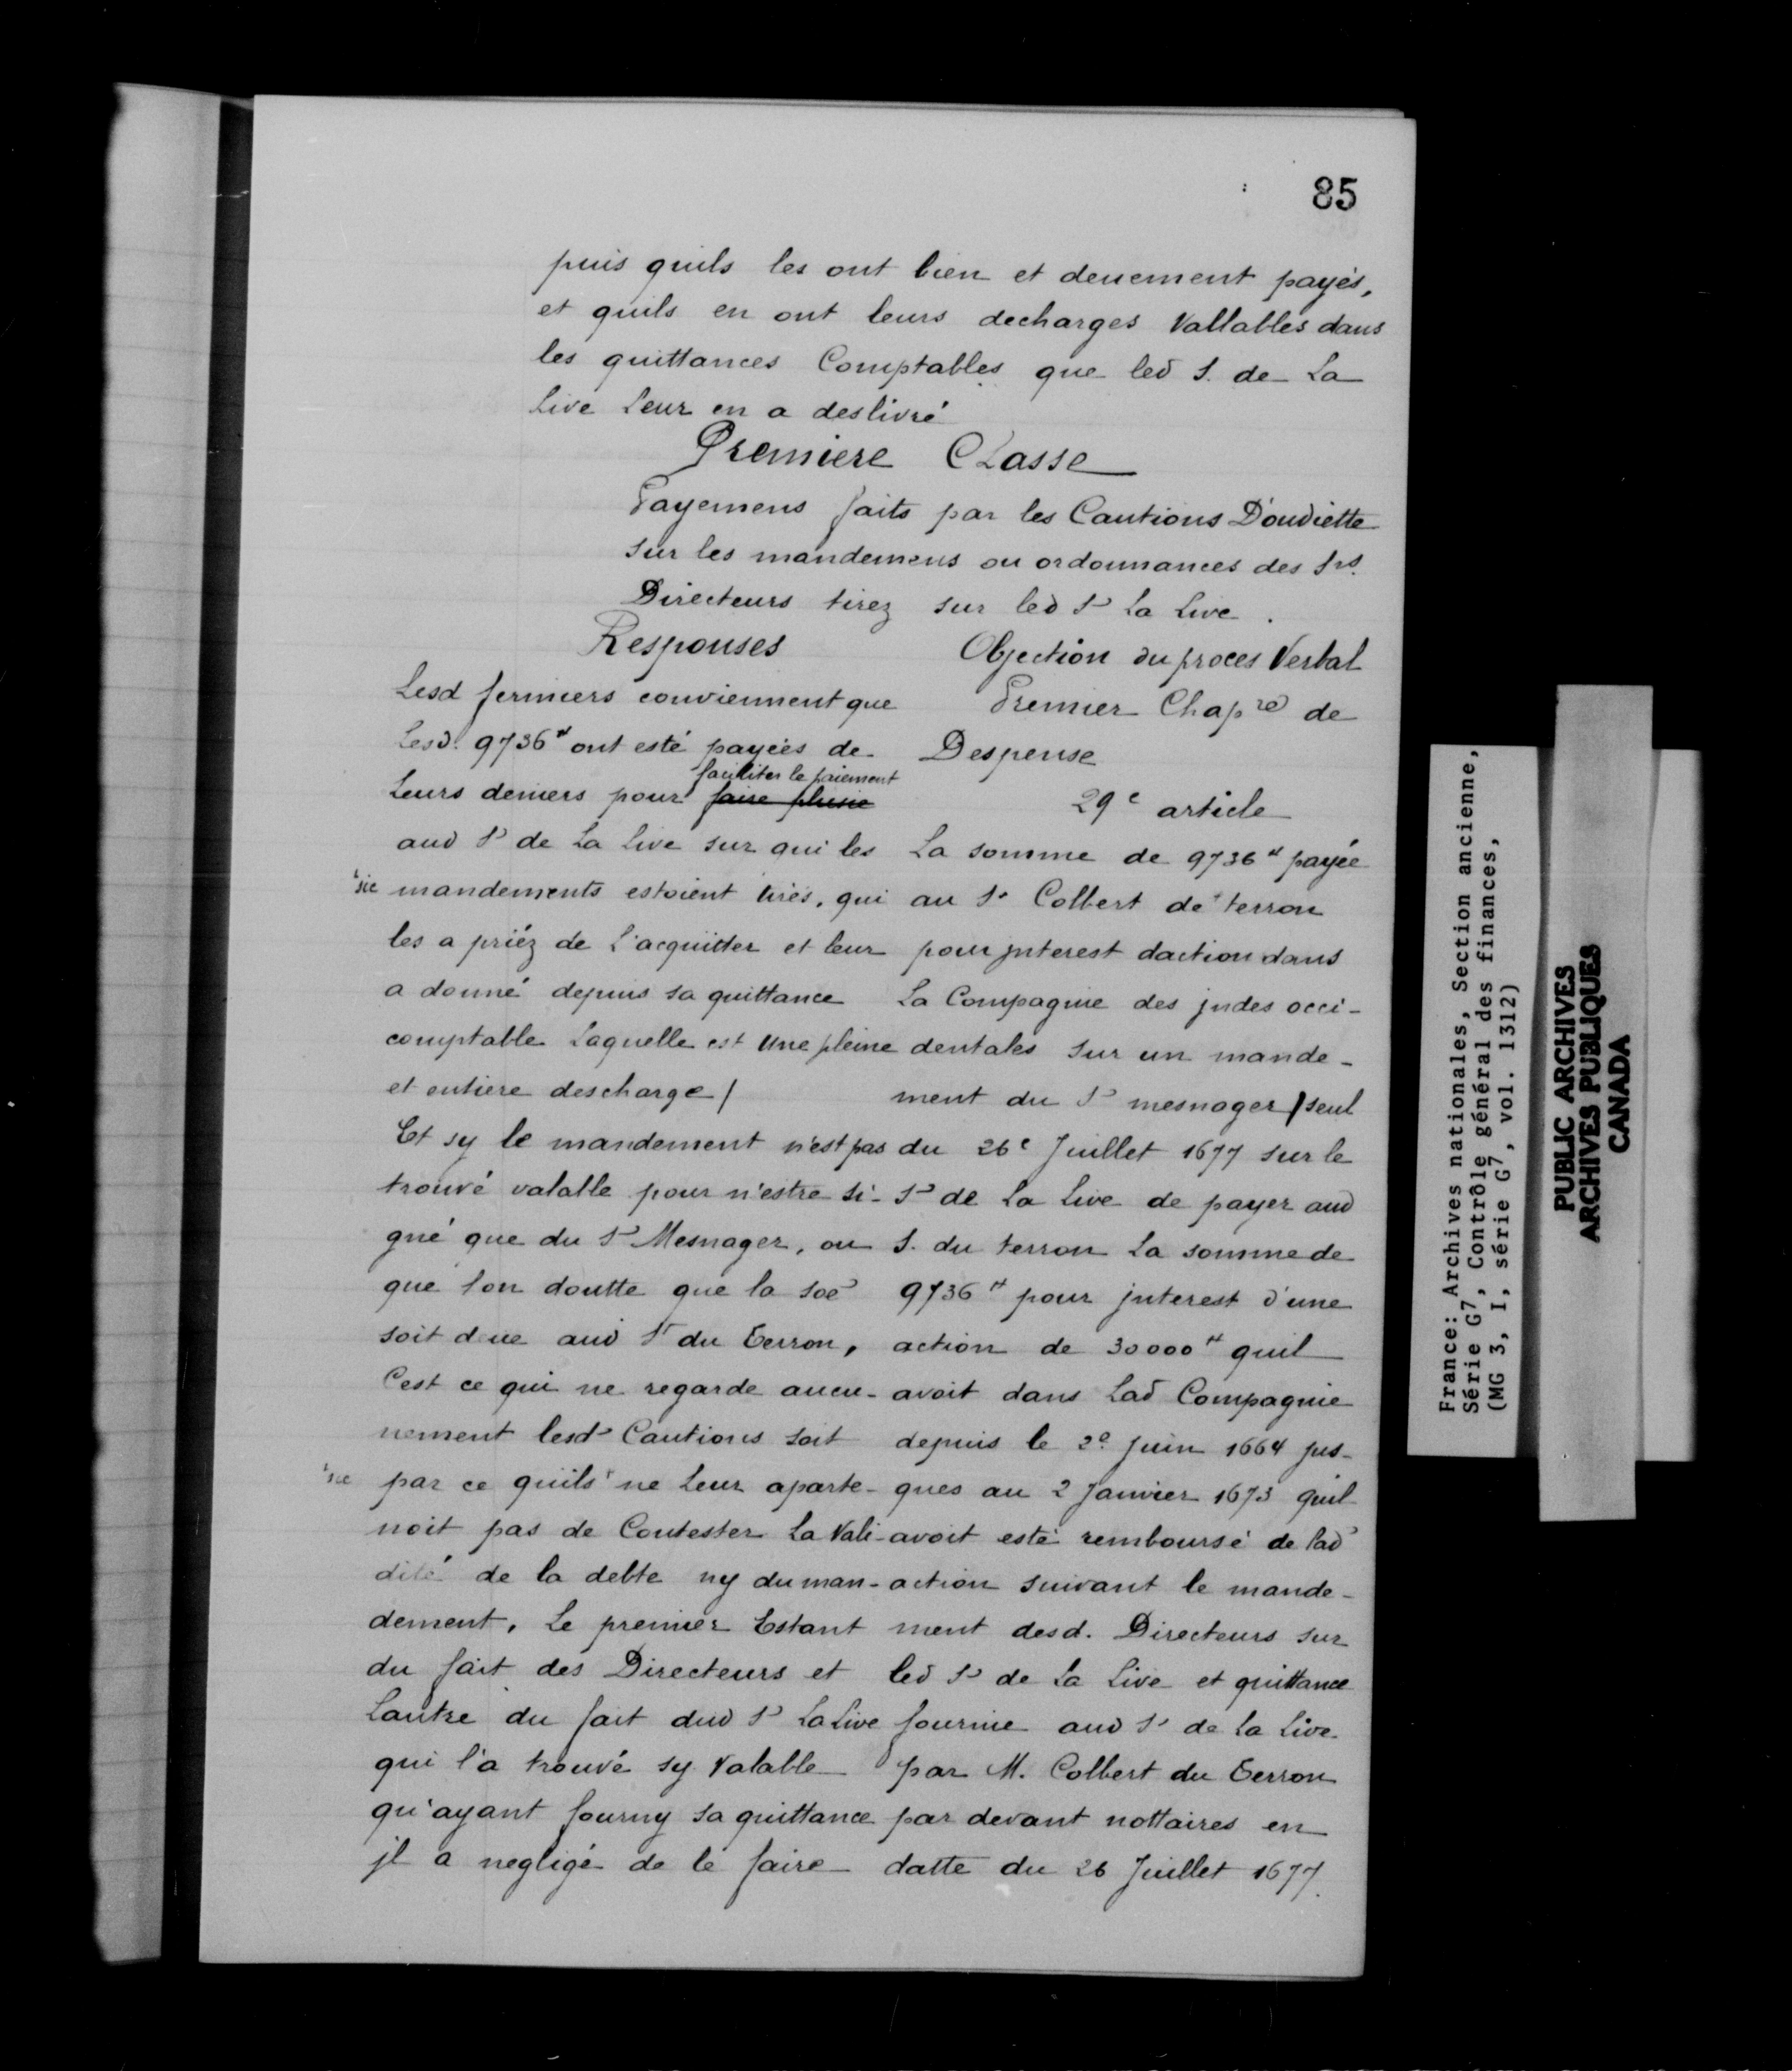 85
puis quils les ont bien et deuement payés,
et quils en ont leurs decharges Vallables dans
les quittances Comptables que led S. de La
Live Leur en a deslivré
Premiere Classe
Payemens faits par les Cautions D'oudiette
sur les mandemens ou ordonnances des Srs.
Directeurs tirez sur led Sr La Live.
Responses
Lesd fermiers conviennent que
Lesd. 9736# ont esté payées de
Leurs deniers pour faire plusie
faciliter le paiement
aud Sr de La Live sur qui les
sic mandements estoient tirés, qui
les a priéz de L'acquitter et leur
a donné depuis sa quittance
comptable Laquelle est Une pleine
et entiere descharge /
Et sy le mandement n'est pas
trouvé valable pour n'estre si-
gné que du Sr Mesnager, ou
que lon doutte que la soe
soit deue aud Sr du Terron,
C'est ce qui ne regarde aucu-
nement lesd Cautions soit
sic par ce quils ne Leur aparte-
noit pas de Contester La Vali-
dité de la debte ny du man-
dement, Le premier Estant
du fait des Directeurs et
Lautre du fait dud Sr LaLive
qui l'a trouvé sy Valable
qu'ayant fourny sa quittance
jl a negligé de le faire
Objection du proces Verbal
Premier Chapre de
Despense
29e article
La somme de 9736# payée
au Sr Colbert de terron
pour jnterest daction dans
La Compagnie des jndes occi-
dentales sur un mande-
ment du Sr mesnager / seul
du 26e Juillet 1677 sur le
Sr de La Live de payer aud
S. du terron La somme de
9736# pour jnterest d'une
action de 30000# quil
avoit dans Lad Compagnie
depuis le 2e juin 1664 jus-
ques au 2 Janvier 1673 quil
avoit esté remboursé de lad
action suivant le mande-
ment desd. Directeurs sur
led Sr de La Live et quittance
fournie aud Sr de La Live
par M. Colbert du Terron
par devant nottaires en
datte du 26 Juillet 1677.
France: Archives nationales, Section ancienne,
Série G7, Contrôle général des finances,
(MG 3, I, série G7, vol. 1312)
PUBLIC ARCHIVES
ARCHIVES PUBLIQUES
CANADA